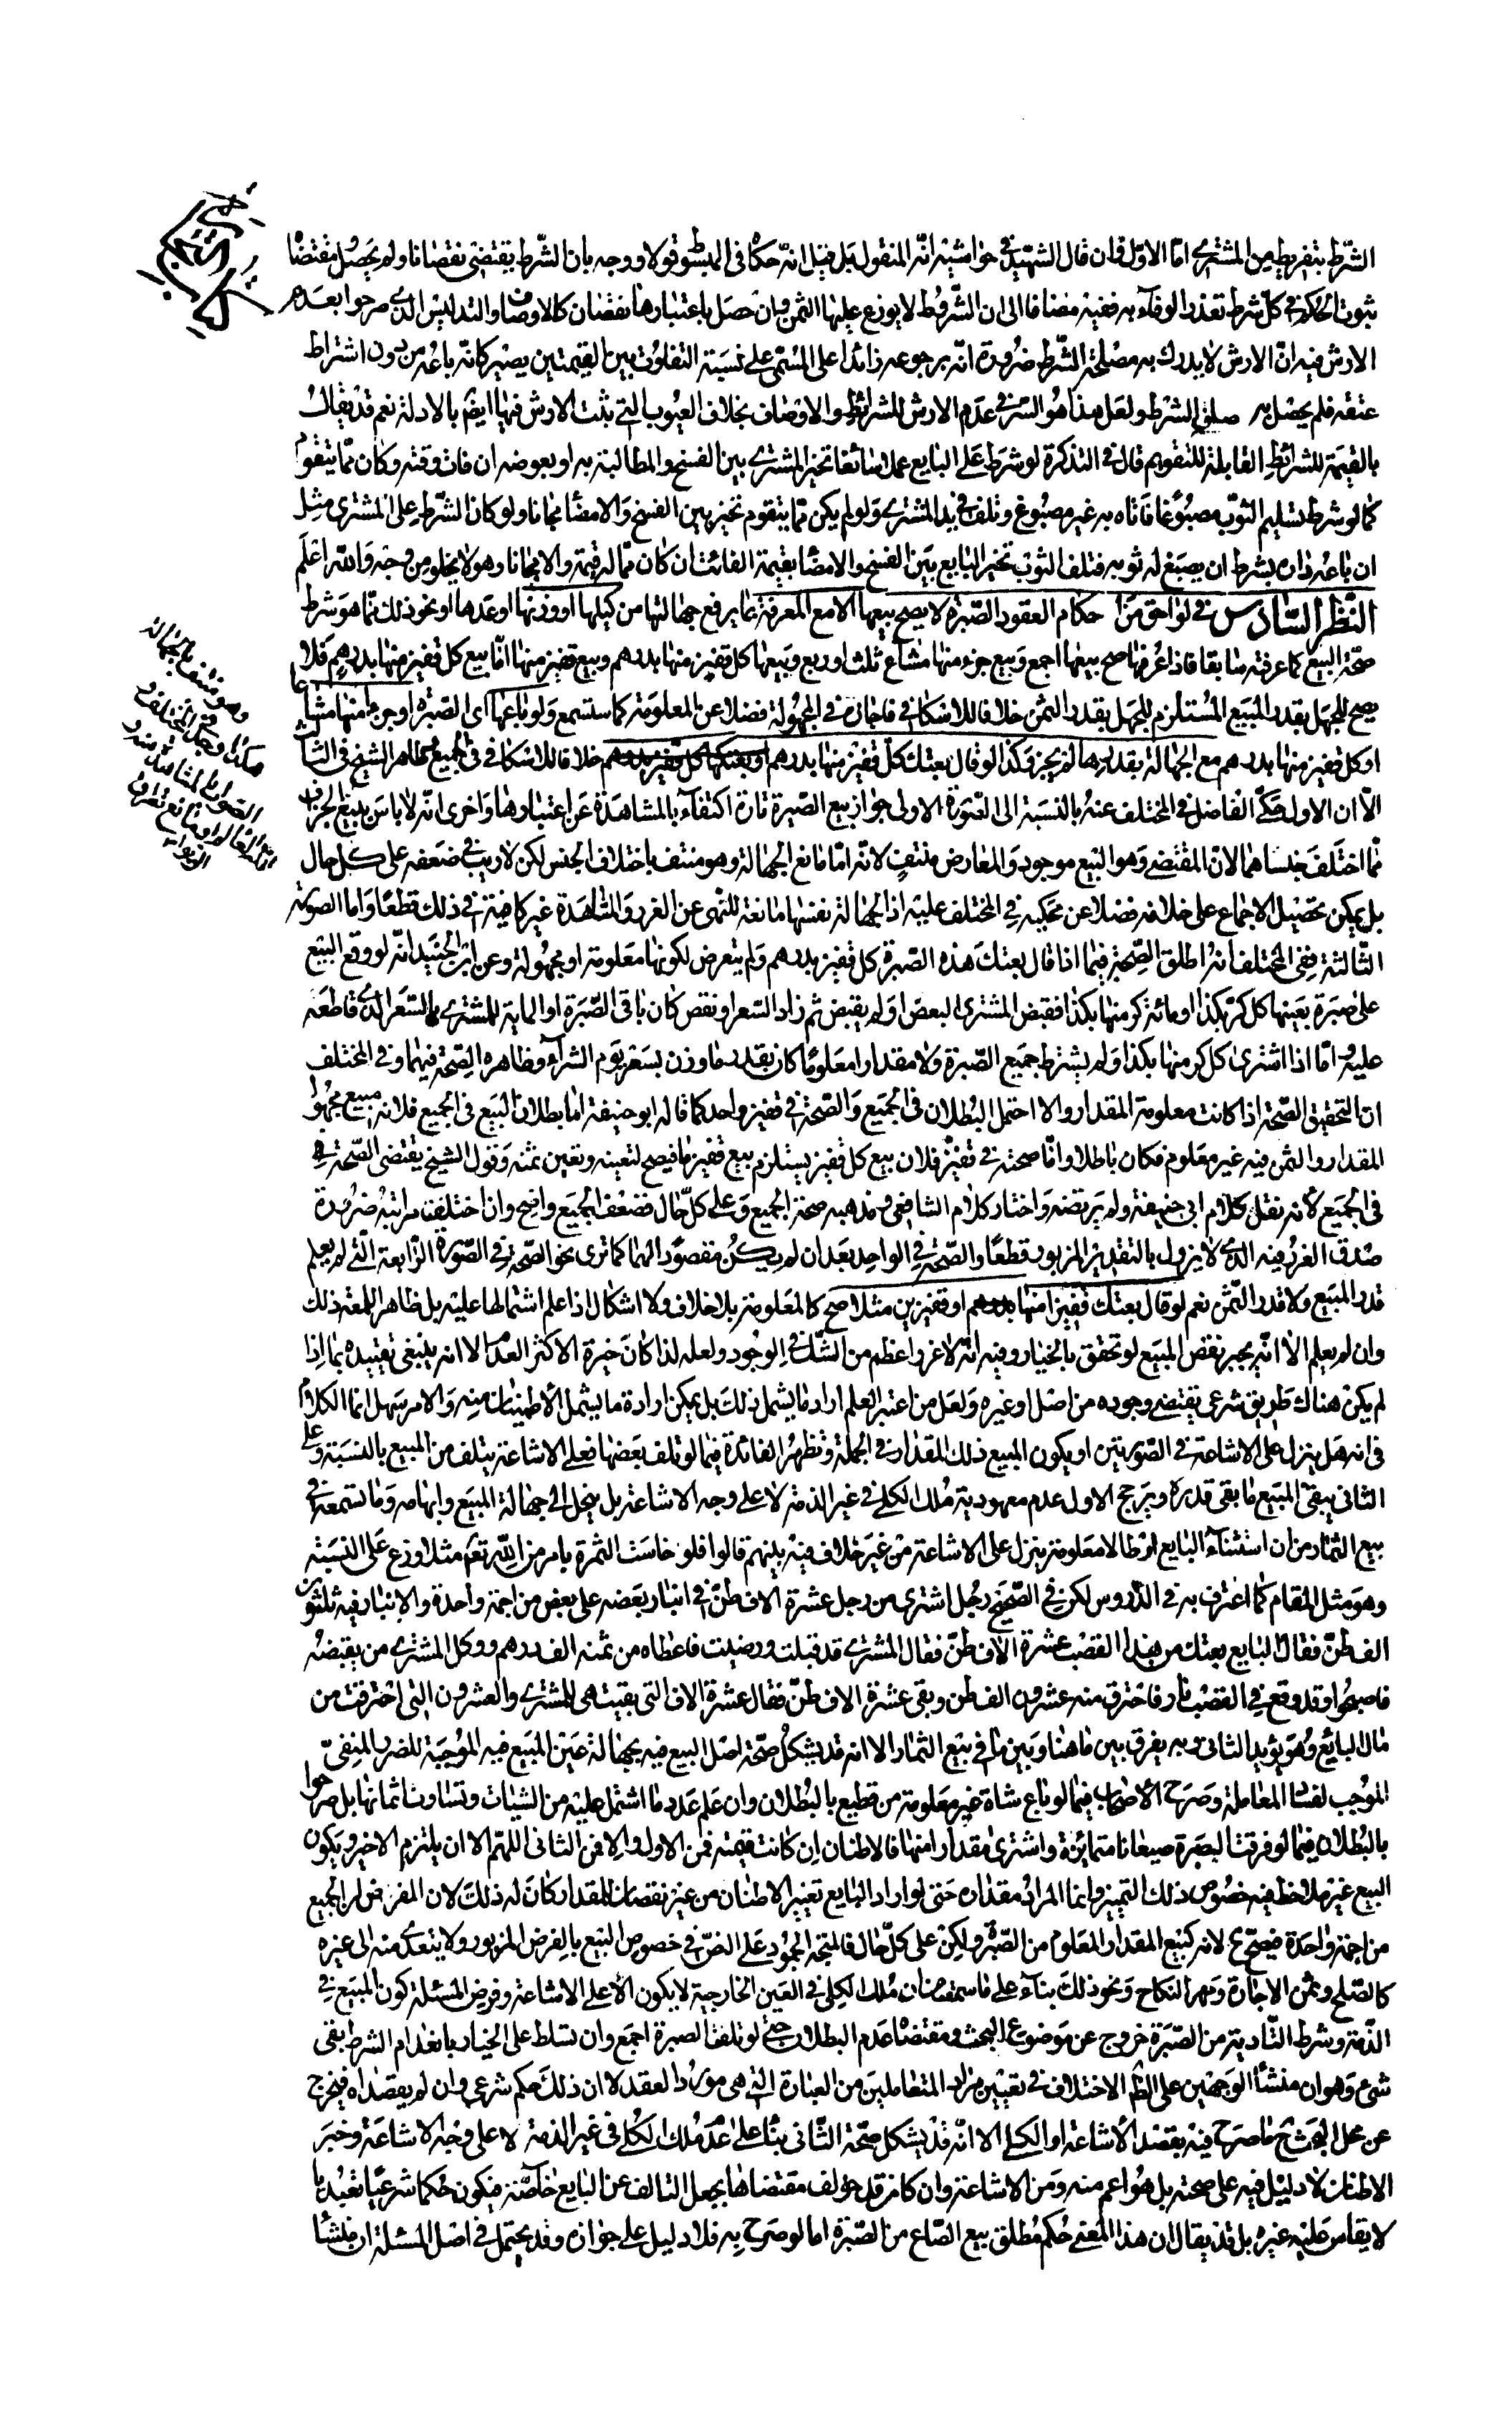 الشرط بتفريط من المشتري اما الاول فان قال الشهيد في حواشيه انه المنقول بل قيل انه حكاه في المبسوط قولا ووجه بان الشرط يقتضي نقصانا ولم يحصل مقتضاه
ثبوت الحكم في كل شرط تعذر الوفاء به ففيه مضافا الى ان الشروط لا يوزع عليها الثمن وان حصل باعتبارها نقصان كالاوصاف والتدليس الذي صرحوا بعدم
الارش فيه ان الارش لا يدرك به مصلحة الشرط ضرورة انه برجوعه زائدا على المسمى على نسبة التفاوت بين القيمتين يصير كانه باعه من دون اشتراط
عتقه فلم يحصل به الشرط ولعل هذا هو السر في عدم الارش للشرائط والاوصاف بخلاف العيوب التي يثبت الارش فيها ايضا بالادلة نعم قد يقال
بالقيمة للشرائط القابلة للتقويم قال في التذكرة لو شرط على البايع عملا سائغا تخير المشتري بين الفسخ والمطالبة به او بعوضه ان فات وقته وكان مما يتقوم
كما لو شرط تسليم الثوب مصبوغا فاتاه به غير مصبوغ وتلف في يد المشتري ولو لم يكن مما يتقوم تخير بين الفسخ والامضاء مجانا ولو كان الشرط على المشتري مثل
ان باعه داره بشرط ان يصبغ له ثوبه فتلف الثوب تخير البايع بين الفسخ والامضاء بقيمة الفائت ان كان مما له قيمة والا مجانا وهو لا يخلو من وجه والله اعلم
النظر السادس في لواحق من احكام العقود الصبرة لا يصح بيعها الا مع المعرفة بما يرفع جهالتها من كيلها او وزنها او عدها او نحو ذلك مما هو شرط
صحة البيع كما عرفته سابقا فاذا عرفها صح بيعها اجمع وبيع جزء منها مشاع ثلث او ربع وبيعها كل قفيز منها بدرهم وبيع قفيز منها اما بيع كل قفيز منها بدرهم فلا
يصح للجهل بقدر المبيع المستلزم للجهل بقدر الثمن خلافا للاسكافي فاجازه في المجهولة فضلا عن المعلومة كما ستسمع ولو باعها اي الصبرة او جزءا منها مشاعا
او كل قفيز منها بدرهم مع الجهالة بقدرها لم يجز وكذا لو قال بعتك كل قفيز منها بدرهم او بعتكها كل قفيز بدرهم خلافا للاسكافي في الجميع ولظاهر الشيخ في الثالث
الا ان الاول حكى الفاضل في المختلف عنه بالنسبة الى الصورة الاولى جواز بيع الصبرة تارة اكتفاء بالمشاهدة عن اعتبارها واخرى انه لا باس ببيع الجزاف
مما اختلف جنساهما لان المقتضي وهو البيع موجود والمعارض منتف لانه اما مانع الجهالة وهو منتف باختلاف الجنس لكن لا ريب في ضعفه على كل حال
بل يمكن تحصيل الاجماع على خلافه فضلا عن محكيه في المختلف عليه اذ الجهالة نفسها مانعة للنهي عن الغرر والمشاهدة غير كافية في ذلك قطعا واما الصورة
الثالثة ففي المختلف انه اطلق الصحة فيما اذا قال بعتك هذه الصبرة كل قفيز بدرهم ولم يتعرض لكونها معلومة او مجهولة وعن ابن الجنيد انه لو وقع البيع
على صبرة بعينها كل كر بكذا او مائة كر منها بكذا فقبض المشتري البعض او لم يقبض ثم زاد السعر او نقص كان باقي الصبرة او الماية للمشتري بالسعر الذي قاطعه
عليه واما اذا اشترى كل كر منها بكذا ولم يشترط جميع الصبرة ولا مقدارا معلوما كان بقدر ما وزن بسعر يوم الشراء وظاهره الصحة فيهما وفي المختلف
ان التحقيق الصحة اذا كانت معلومة المقدار والا احتمل البطلان في الجميع والصحة في قفيز واحد كما قاله ابو حنيفة اما بطلان البيع في الجميع فلانه مبيع مجهول
المقدار والثمن فيه غير معلوم فكان باطلا واما صحته في قفيز فلان بيع كل قفيز يستلزم بيع قفيز ما فيصح لتعينه وتعين ثمنه وقول الشيخ يقتضي الصحة في
في الجميع لانه نقل كلام ابي حنيفة ولم يرتضه واختار كلام الشافعي ومذهبه صحة الجميع وعلى كل حال فضعف الجميع واضح وان اختلفت مراتبه ضرورة
صدق الغرر فيه الذي لا يزول بالتقدير المزبور قطعا والصحة في الواحد بعد ان لم يكن مقصودا لهما كما ترى نحو الصحة في الصورة الرابعة التي لم يعلم
قدر المبيع ولا قدر الثمن نعم لو قال بعتك قفيزا منها بدرهم او قفيزين مثلا صح كالمعلومة بلا خلاف ولا اشكال اذا علم اشتمالها عليه بل ظاهر اللمعة ذلك
وان لم يعلم الا انه يجبر نقص المبيع لو تحقق بالخيار وفيه انه لا غرر اعظم من الشك في الوجود ولعله لذا كان خيرة الاكثر العدم الا انه ينبغي تقييده بما اذا
لم يكن هناك طريق شرعي يقتضي وجوده من اصل او غيره ولعل من اعتبر العلم اراد ما يشمل ذلك بل يمكن ارادة ما يشمل الاطمينان منه والامر سهل انما الكلام
في انه هل ينزل على الاشاعة في الصورتين او يكون المبيع ذلك المقدار في الجملة وتظهر الفائدة فيما لو تلف بعضها فعلى الاشاعة يتلف من المبيع بالنسبة وعلى
الثاني يبقى المبيع ما بقي قدره ويرجح الاول عدم معهودية ملك الكلي في غير الذمة لا على وجه الاشاعة بل ينحل الى جهالة المبيع وابهامه وما تسمعه في
بيع الثمار من ان استثناء البايع ارطالا معلومة ينزل على الاشاعة من غير خلاف فيه بينهم قالوا فلو خاست الثمرة بامر من الله تعم مثلا وزع على النسبة
وهو مثل المقام كما اعترف به في الدروس لكن في الصحيح رجل اشترى من رجل عشرة الاف طن في انبار بعضه على بعض من اجمة واحدة والانبار فيه ثلثون
الف طن فقال البايع بعتك من هذا القصب عشرة الاف طن فقال المشتري قد قبلت ورضيت فاعطاه من ثمنه الف درهم ووكل المشتري من يقبضه
فاصبحوا وقد وقع في القصب نار فاحترق منه عشرون الف طن وبقي عشرة الاف طن فقال عشرة الاف التي بقيت هي للمشتري والعشرون التي احترقت من
مال البايع وهو يؤيد الثاني وبه يفرق بين ما هنا وبين ما في بيع الثمار الا انه قد يشكل صحة اصل البيع فيه بجهالة عين المبيع فيه الموجبة للضرر المنفي
الموجب لفساد المعاملة وصرح الاصحاب فيما لو باع شاة غير معلومة من قطيع بالبطلان وان علم عدد ما اشتمل عليه من الشياة وتساوت اثمانها بل صرحوا
بالبطلان فيما لو فرقت الصبرة صيعانا متمايزة واشترى مقدارا منها فالاطنان ان كانت قيمته فمن الاول والا فمن الثاني اللهم الا ان يلتزم الاخير ويكون
البيع غير ملاحظ فيه خصوص ذلك التميز وانما المراد مقداره حتى لو اراد البايع تغيير الاطنان من غير نقصان للمقدار كان له ذلك لان المفروض ان الجميع
من اجمة واحدة فيصح ح لانه كبيع المقدار المعلوم من الصبرة ولكن على كل حال فالمتجه الجمود على النص في خصوص البيع بالفرض المزبور ولا يتعدى منه الى غيره
كالصلح وثمن الاجارة ومهر النكاح ونحو ذلك بناء على ما سمعته من ان ملك الكلي في العين الخارجية لا يكون الا على الاشاعة وفرض المسئلة كون المبيع في
الذمة وشرط التادية من الصبرة خروج عن موضوع البحث ومقتضاه عدم البطلان حتى لو تلفت الصبرة اجمع وان تسلط على الخيار بانعدام الشرط بقي
شيء وهو ان منشأ الوجهين على الظ الاختلاف في تعيين مراد المتعاملين من العبارة التي هي مورد العقد لا ان ذلك حكم شرعي وان لم يقصداه فيخرج
عن محل البحث ح ما صرح فيه بقصد الاشاعة او الكلي الا انه قد يشكل صحة الثاني بناء على عدم ملك الكلي في غير الذمة لا على وجه الاشاعة وخبر
الاطنان لا دليل فيه على صحته بل هو اعم منه ومن الاشاعة وان كان قد خولف مقتضاها بجعل التالف من البايع خاصة فيكون حكما شرعيا تعبديا
لا يقاس عليه غيره بل قد يقال ان هذا المعنى حكم مطلق بيع الصاع من الصبرة اما لو صرح به فلا دليل على جوازه وقد يحتمل في اصل المسئلة ان منشأ